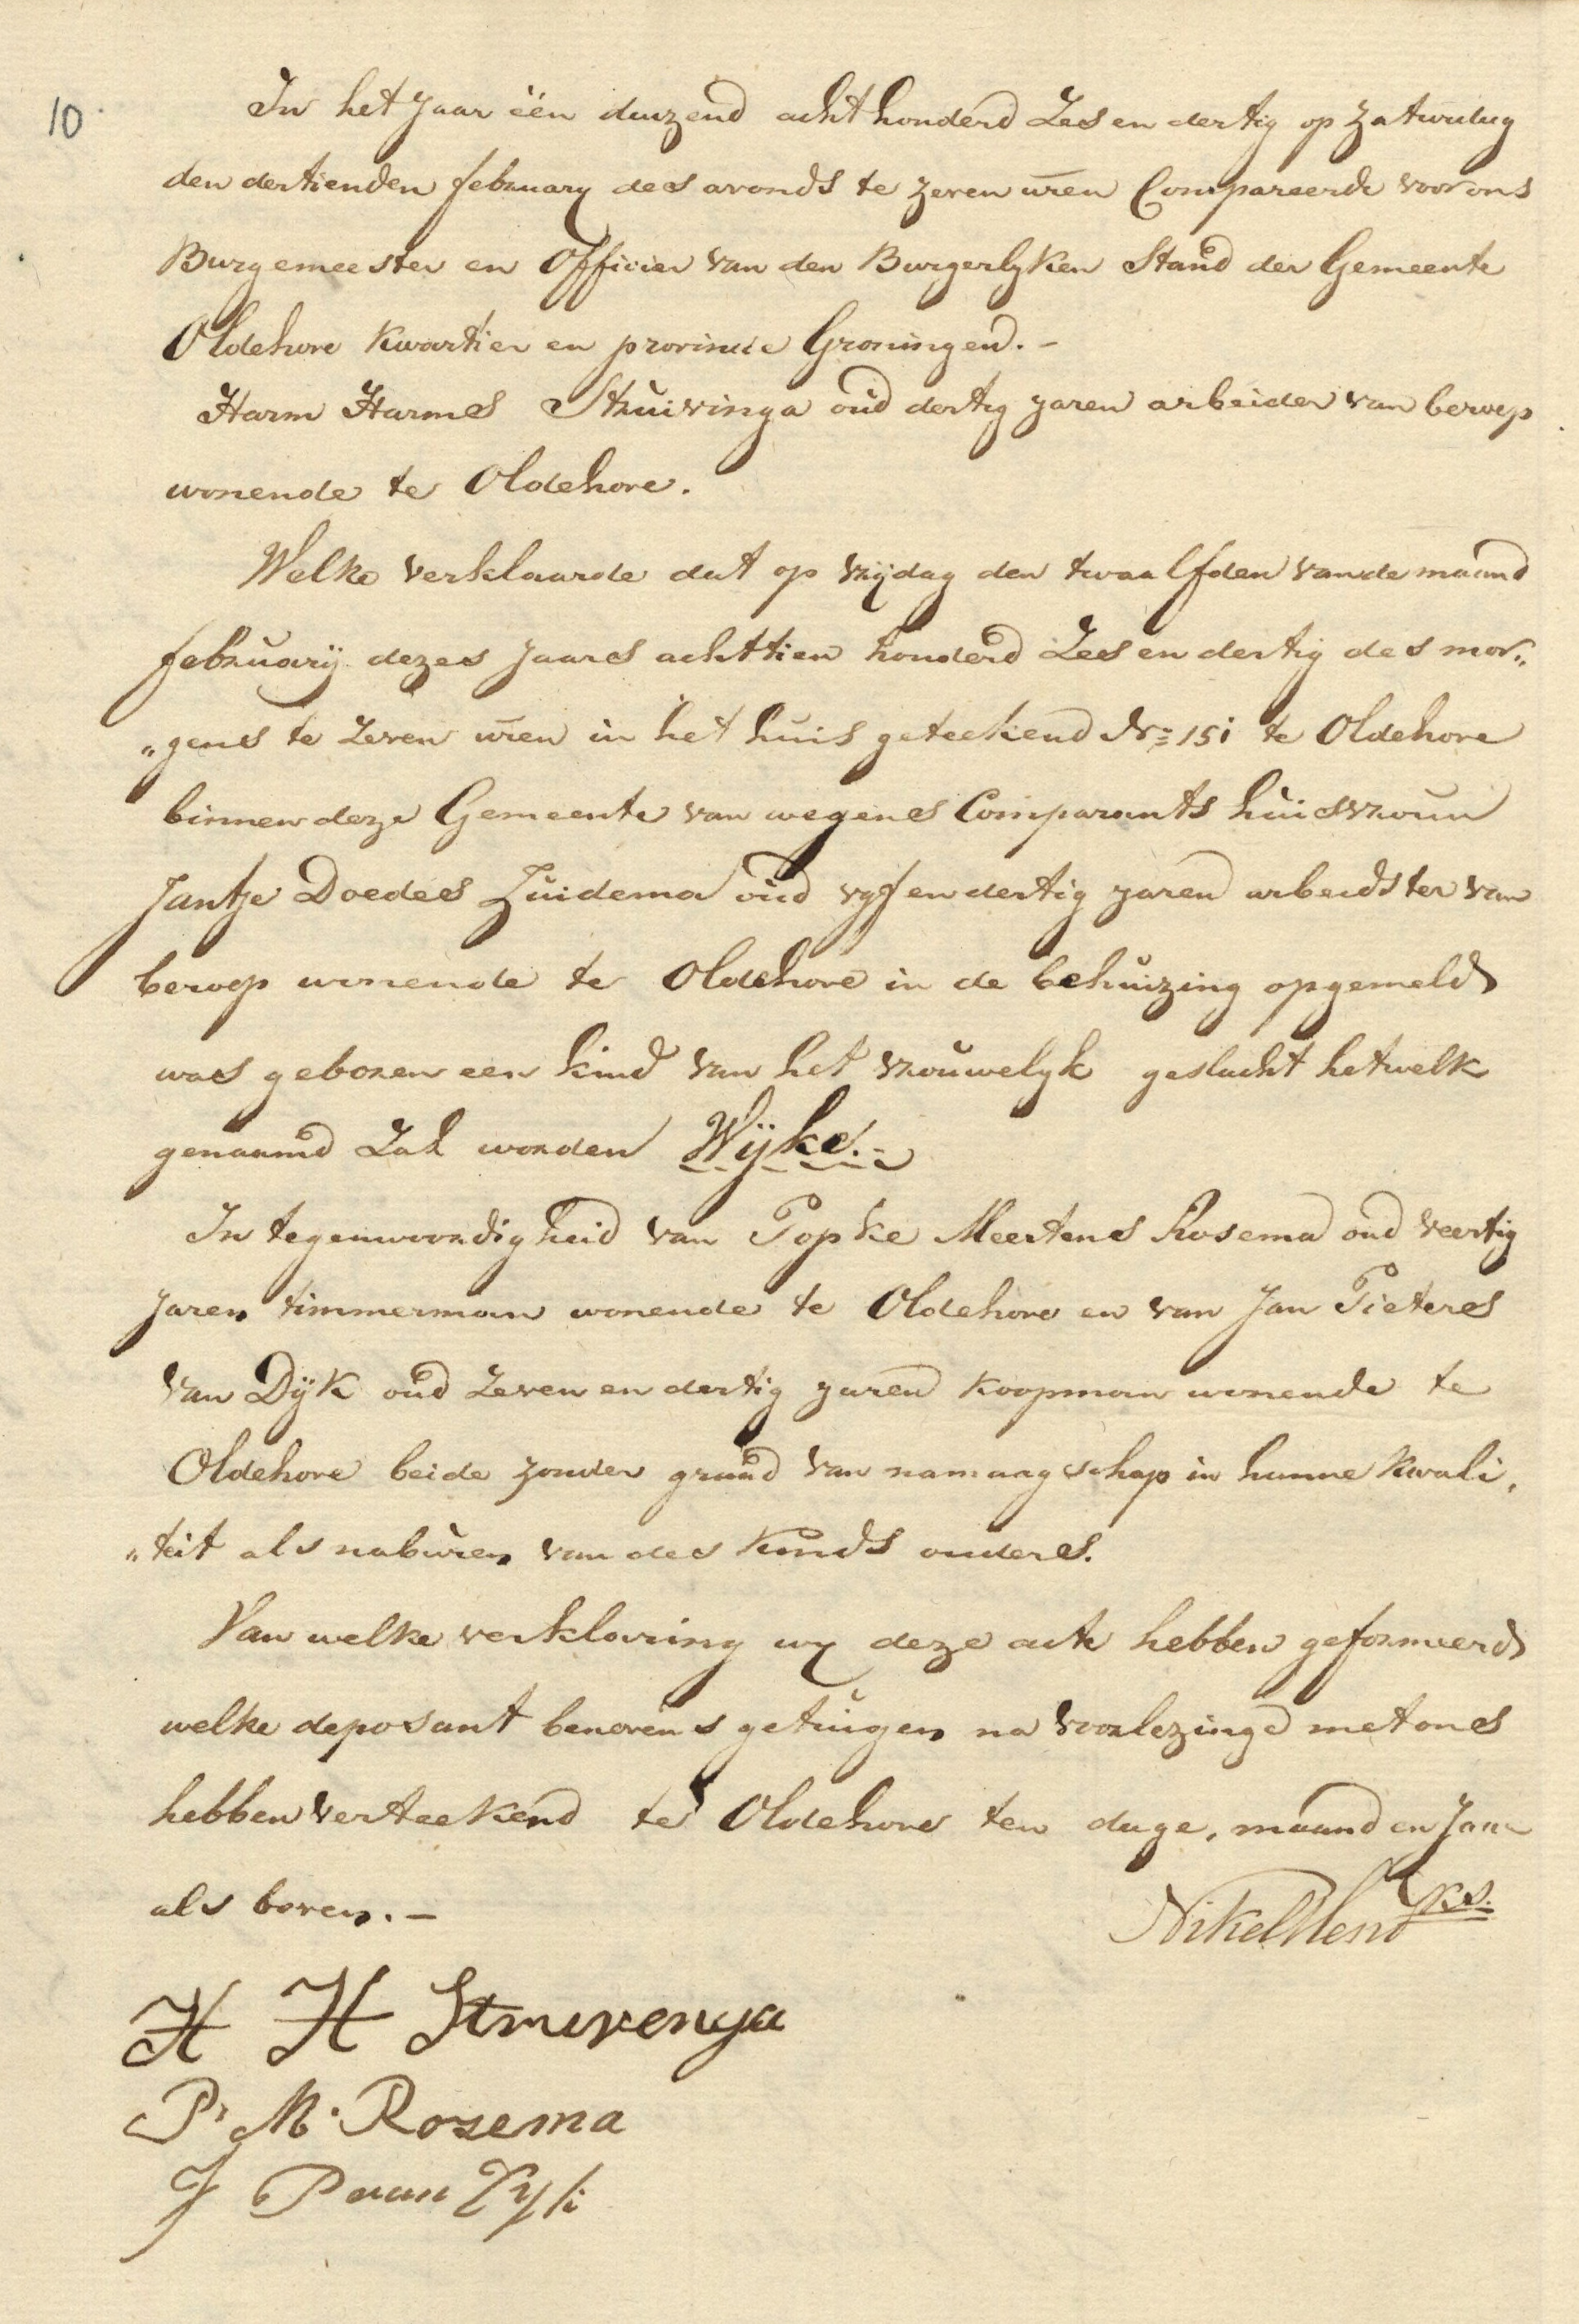 10
In het Jaar één duizend acht honderd Zes en dertig op Zaturdag
den dertienden february des avonds te zeven uren Compareerde voor ons
Burgemeester en Officier van den Burgerlyken Stand der Gemeente
Oldehove Kwartier en provincie Groningen. -
Harm Harmes Struivinga oud dertig jaren arbeider van beroep
wonende te Oldehove.
Welke verklaarde dat op vrijdag den twaalfden van de maand
february dezes Jaars achttien honderd Zes en dertig des mor„
„gens te zeven uren in het huis geteekend No 151 te Oldehove
binnen deze Gemeente van wegenes Comparants huisvrouw
Jantje Doedes Zuidema oud vyf en dertig jaren arbeidster van
beroep wonende te Oldehove in de behuizing opgemeld
was geboren een kind van het vrouwelyk geslacht hetwelk
genaamd Zal worden Wijke. -
In tegenwoordigheid van Popke Meertens Rosema oud veertig
Jaren timmerman wonende te Oldehove en van Jan Pieters
van Dÿk oud Zeven en dertig jaren Koopman wonende te
Oldehove beide zonder graad van namaagschap in hunne Kwali„
„teit als naburen van des Kinds ouders.
Van welke verklaring wy deze acte hebben geformeerd
welke deposant benevens getuigen na voorlezinge met ons
hebben verteekend te Oldehove ten dage, maand en Jaar
als boven. -
H H Struivenga
P. M. Rozema
J P van Dyk